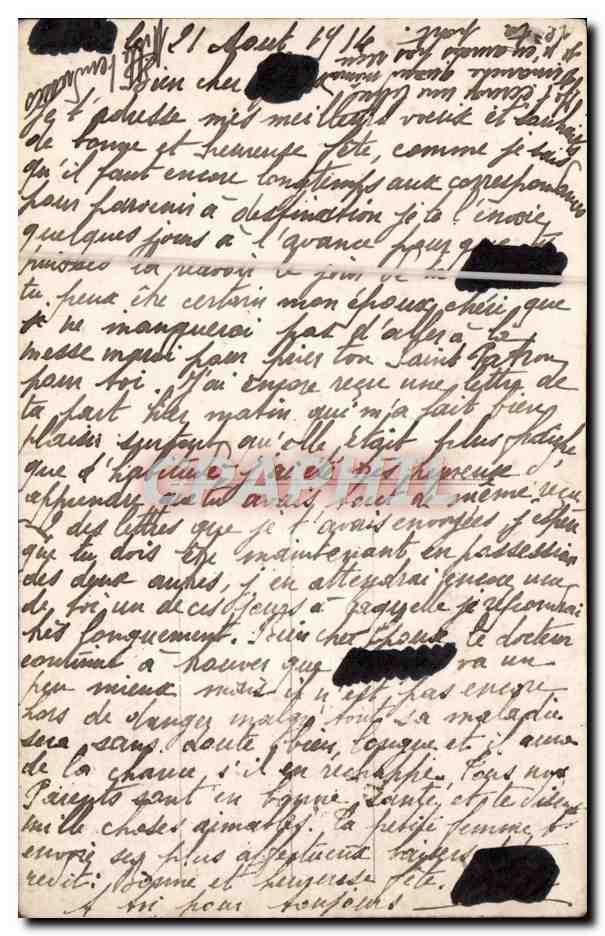 le 21 Aout 1914
Bien cher
je t'adresse mes meilleurs voeux et souhaits
de bonne et heureuse fête, comme je sais
qu'il faut encore longtemps aux correspondances
pour parvenir à destination je te l'envoie
quelques jours à l'avance pour que tu
puisses la recevoir le jour de
tu peux être certain mon époux chéri que
je ne manquerai pas d'aller à la
messe pour prier ton Saint Patron
pour toi. J'ai encore reçu une lettre de
ta part hier matin qui m'a fait bien
plaisir surtout qu'elle était plus
que d'habitude j'ai été heureuse d'
apprendre que tu avais tout de même reçu
des lettres que je t'avais envoyées j'espère
que tu dois être maintenant en possession
des deux autres, j'en attendrai encore une
de toi un de ces jours à laquelle je répondrai
très longuement. Bien cher Epoux, le docteur
continue à trouver que va un
peu mieux mais il n'est pas encore
hors de danger malgré tout sa maladie
sera sans doute bien longue et il aura
de la chance s'il en réchappe. Tous nos
Parents sont en bonne santé et te disent
mille choses aimables. Ta petite femme t'
envoie ses plus affectueux baisers
redit: Bonne et heureuse fête.
A toi pour toujours
CPAPHIL